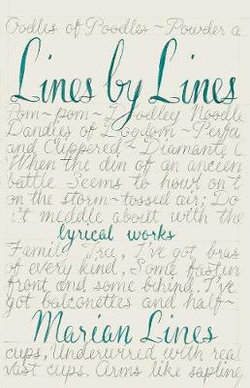 Oodles of Poodles ~ Powder a
Lines by Lines
Pom~pom~Doodley Noodle
Dandies of Dogdom~Perfu
and Clippered~Diamanté C
When the din of an ancien
battle Seems to howl on t
on the storm-tossed air; Do
it meddle about with the
lyrical works
Family Tree, I've got bras
of every kind, Some fastin
front and some behind, I've
got balconettes and half~
Marian Lines
cups, Underwired with real
vast cups. Arms like sapling